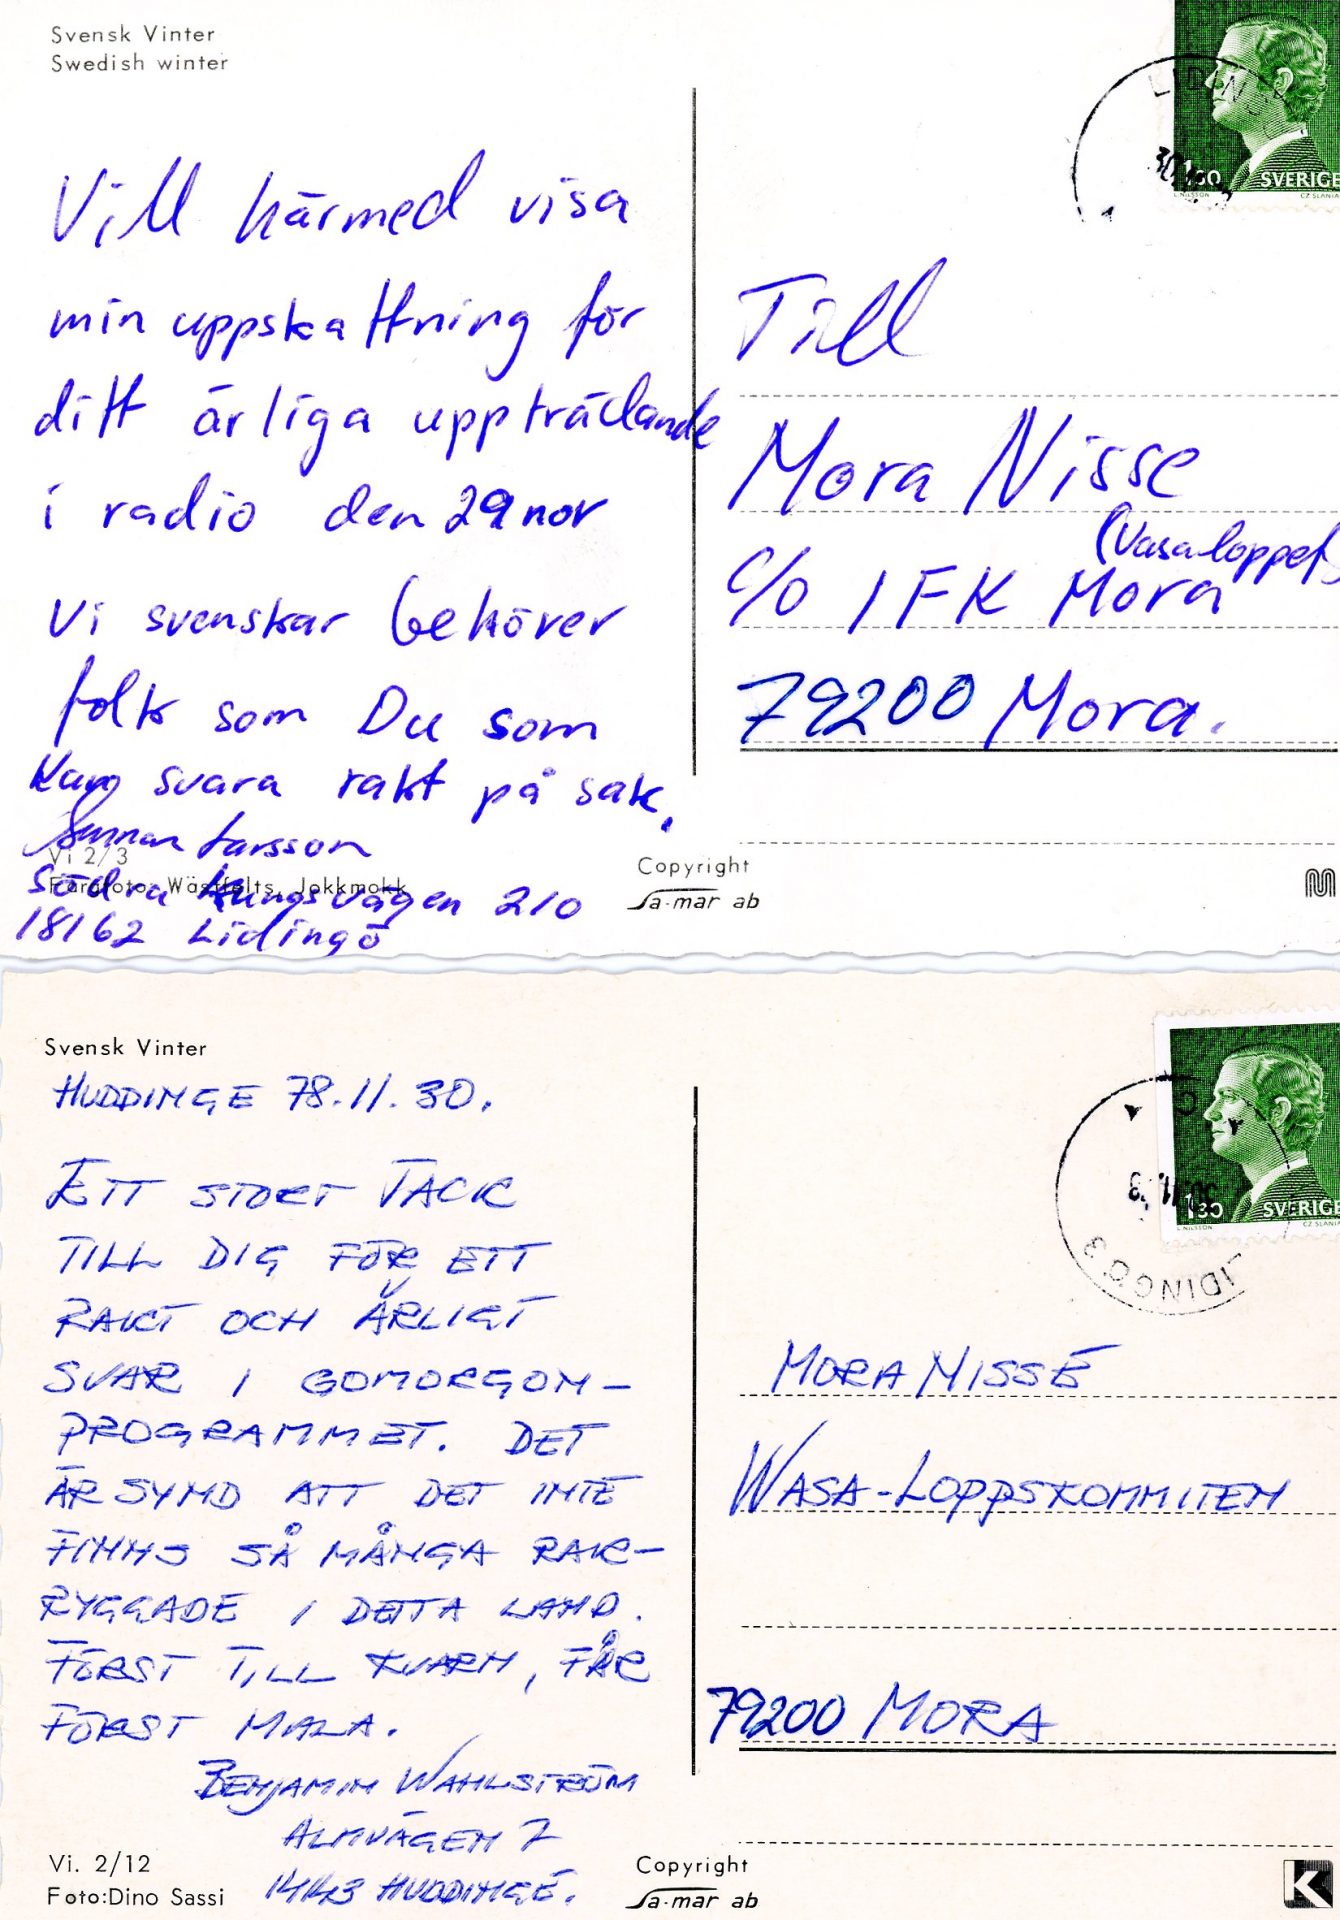 Svensk Vinter
Swedish winter
Vill härmed visa
min uppskattning för
ditt ärliga uppträdande
i radio den 29 nov
Vi svenskar behöver
folk som Du som
kan svara rakt på sak.
Gunnar Larsson
Södra Kungsvägen 210
18162 Lidingö
Vi 2/3
Färgfoto: Wästfelts, Jokkmokk
Copyright
Sa-mar ab
LIDINGÖ
1.30 SVERIGE
L NILSSON CZ SLANIA
Till
Mora Nisse
(Vasaloppet)
c/o IFK Mora
79200 Mora.
Svensk Vinter
HUDDINGE 78.11.30.
ETT STORT TACK
TILL DIG FÖR ETT
RAKT OCH ÄRLIGT
SVAR I GOMORGON-
PROGRAMMET. DET
ÄR SYND ATT DET INTE
FINNS SÅ MÅNGA RAK-
RYGGADE I DETTA LAND.
FÖRST TILL KVARN, FÅR
FÖRST MALA.
BENJAMIN WAHLSTRÖM
ALMVÄGEN 7
HUDDINGE.
Vi. 2/12
Foto:Dino Sassi
Copyright
Sa-mar ab
LIDINGÖ 3
1.30 SVERIGE
L NILSSON CZ SLANIA
MORA NISSE
WASA-LOPPSKOMMITEN
79200 MORA
K